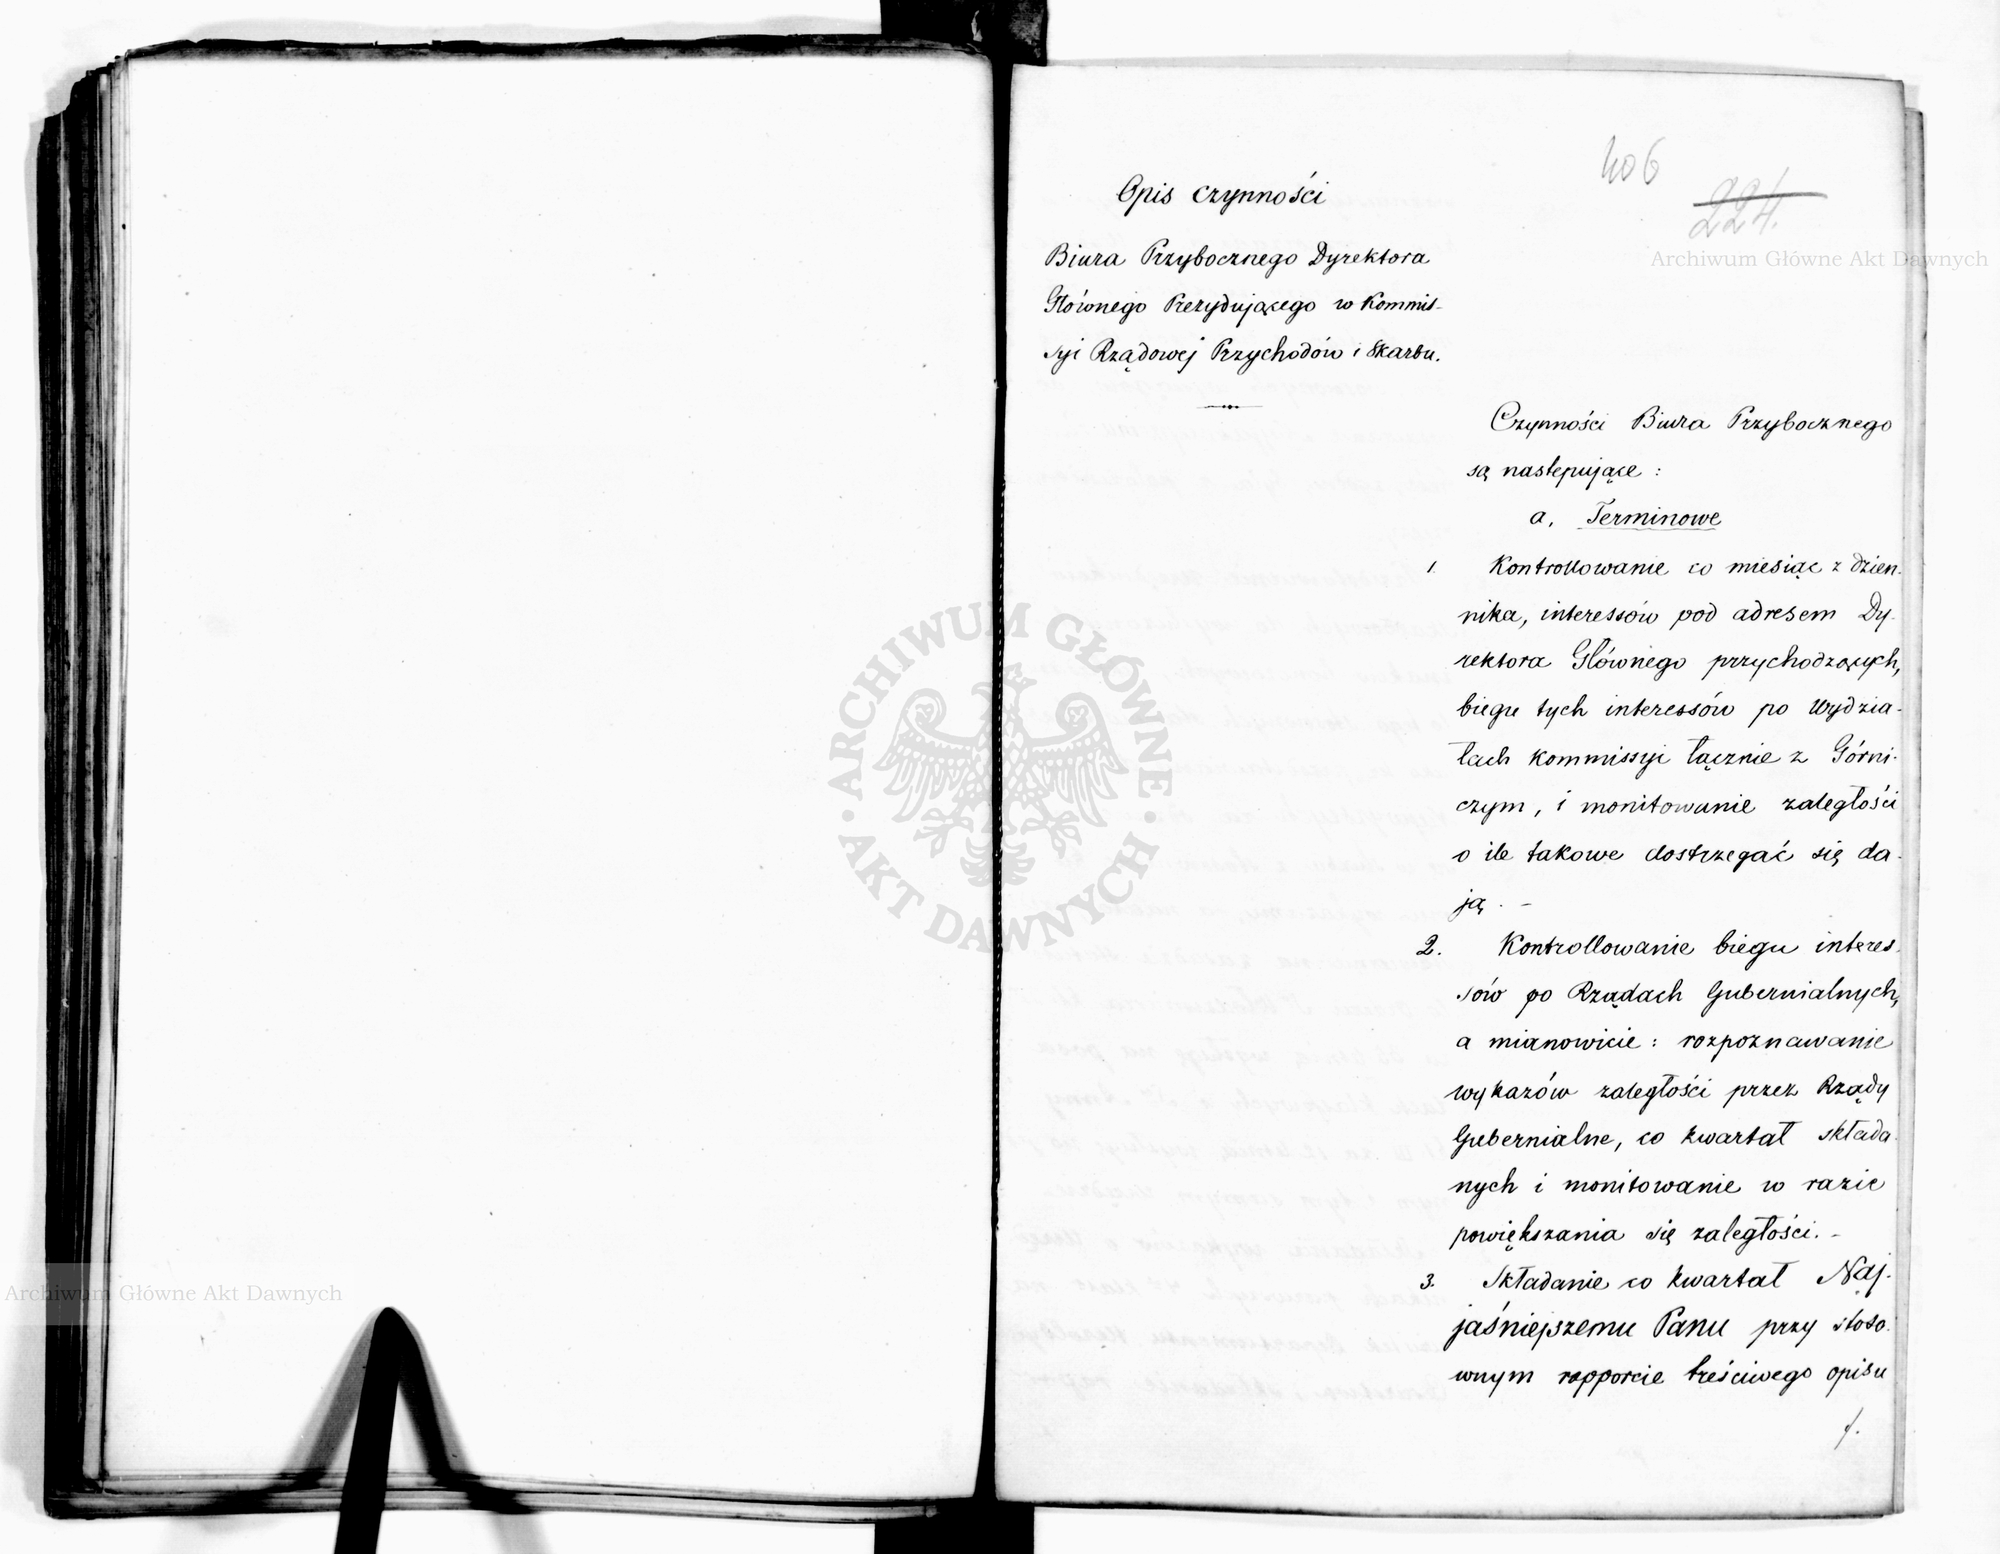 406
224.
Opis czynności
Biura Przybocznego Dyrektora
Głównego Prezydującego w Kommis-
syi Rządowej Przychodów i Skarbu.
Czynności Biura Przybocznego
są następujące :
a, Terminowe
1. Kontrollowanie co miesiąc z dzien-
nika, interessów pod adresem Dy-
rektora Głównego przychodzących,
biegu tych interessów po Wydzia-
łach Kommissyi łącznie z Górni-
czym, i monitowanie zaległości
o ile takowe dostrzegać się da-
ją. –
2. Kontrollowanie biegu interes-
sów po Rządach Gubernialnych,
a mianowicie : rozpoznawanie
wykazów zaległości przez Rządy
Gubernialne, co kwartał składa-
nych i monitowanie w razie
powiększania się zaległości. –
3. Składanie co kwartał Naj-
jaśniejszemu Panu przy stoso-
wnym rapporcie treściwego opisu
Archiwum Główne Akt Dawnych
Archiwum Główne Akt Dawnych
ARCHIWUM GŁÓWNE
AKT DAWNYCH